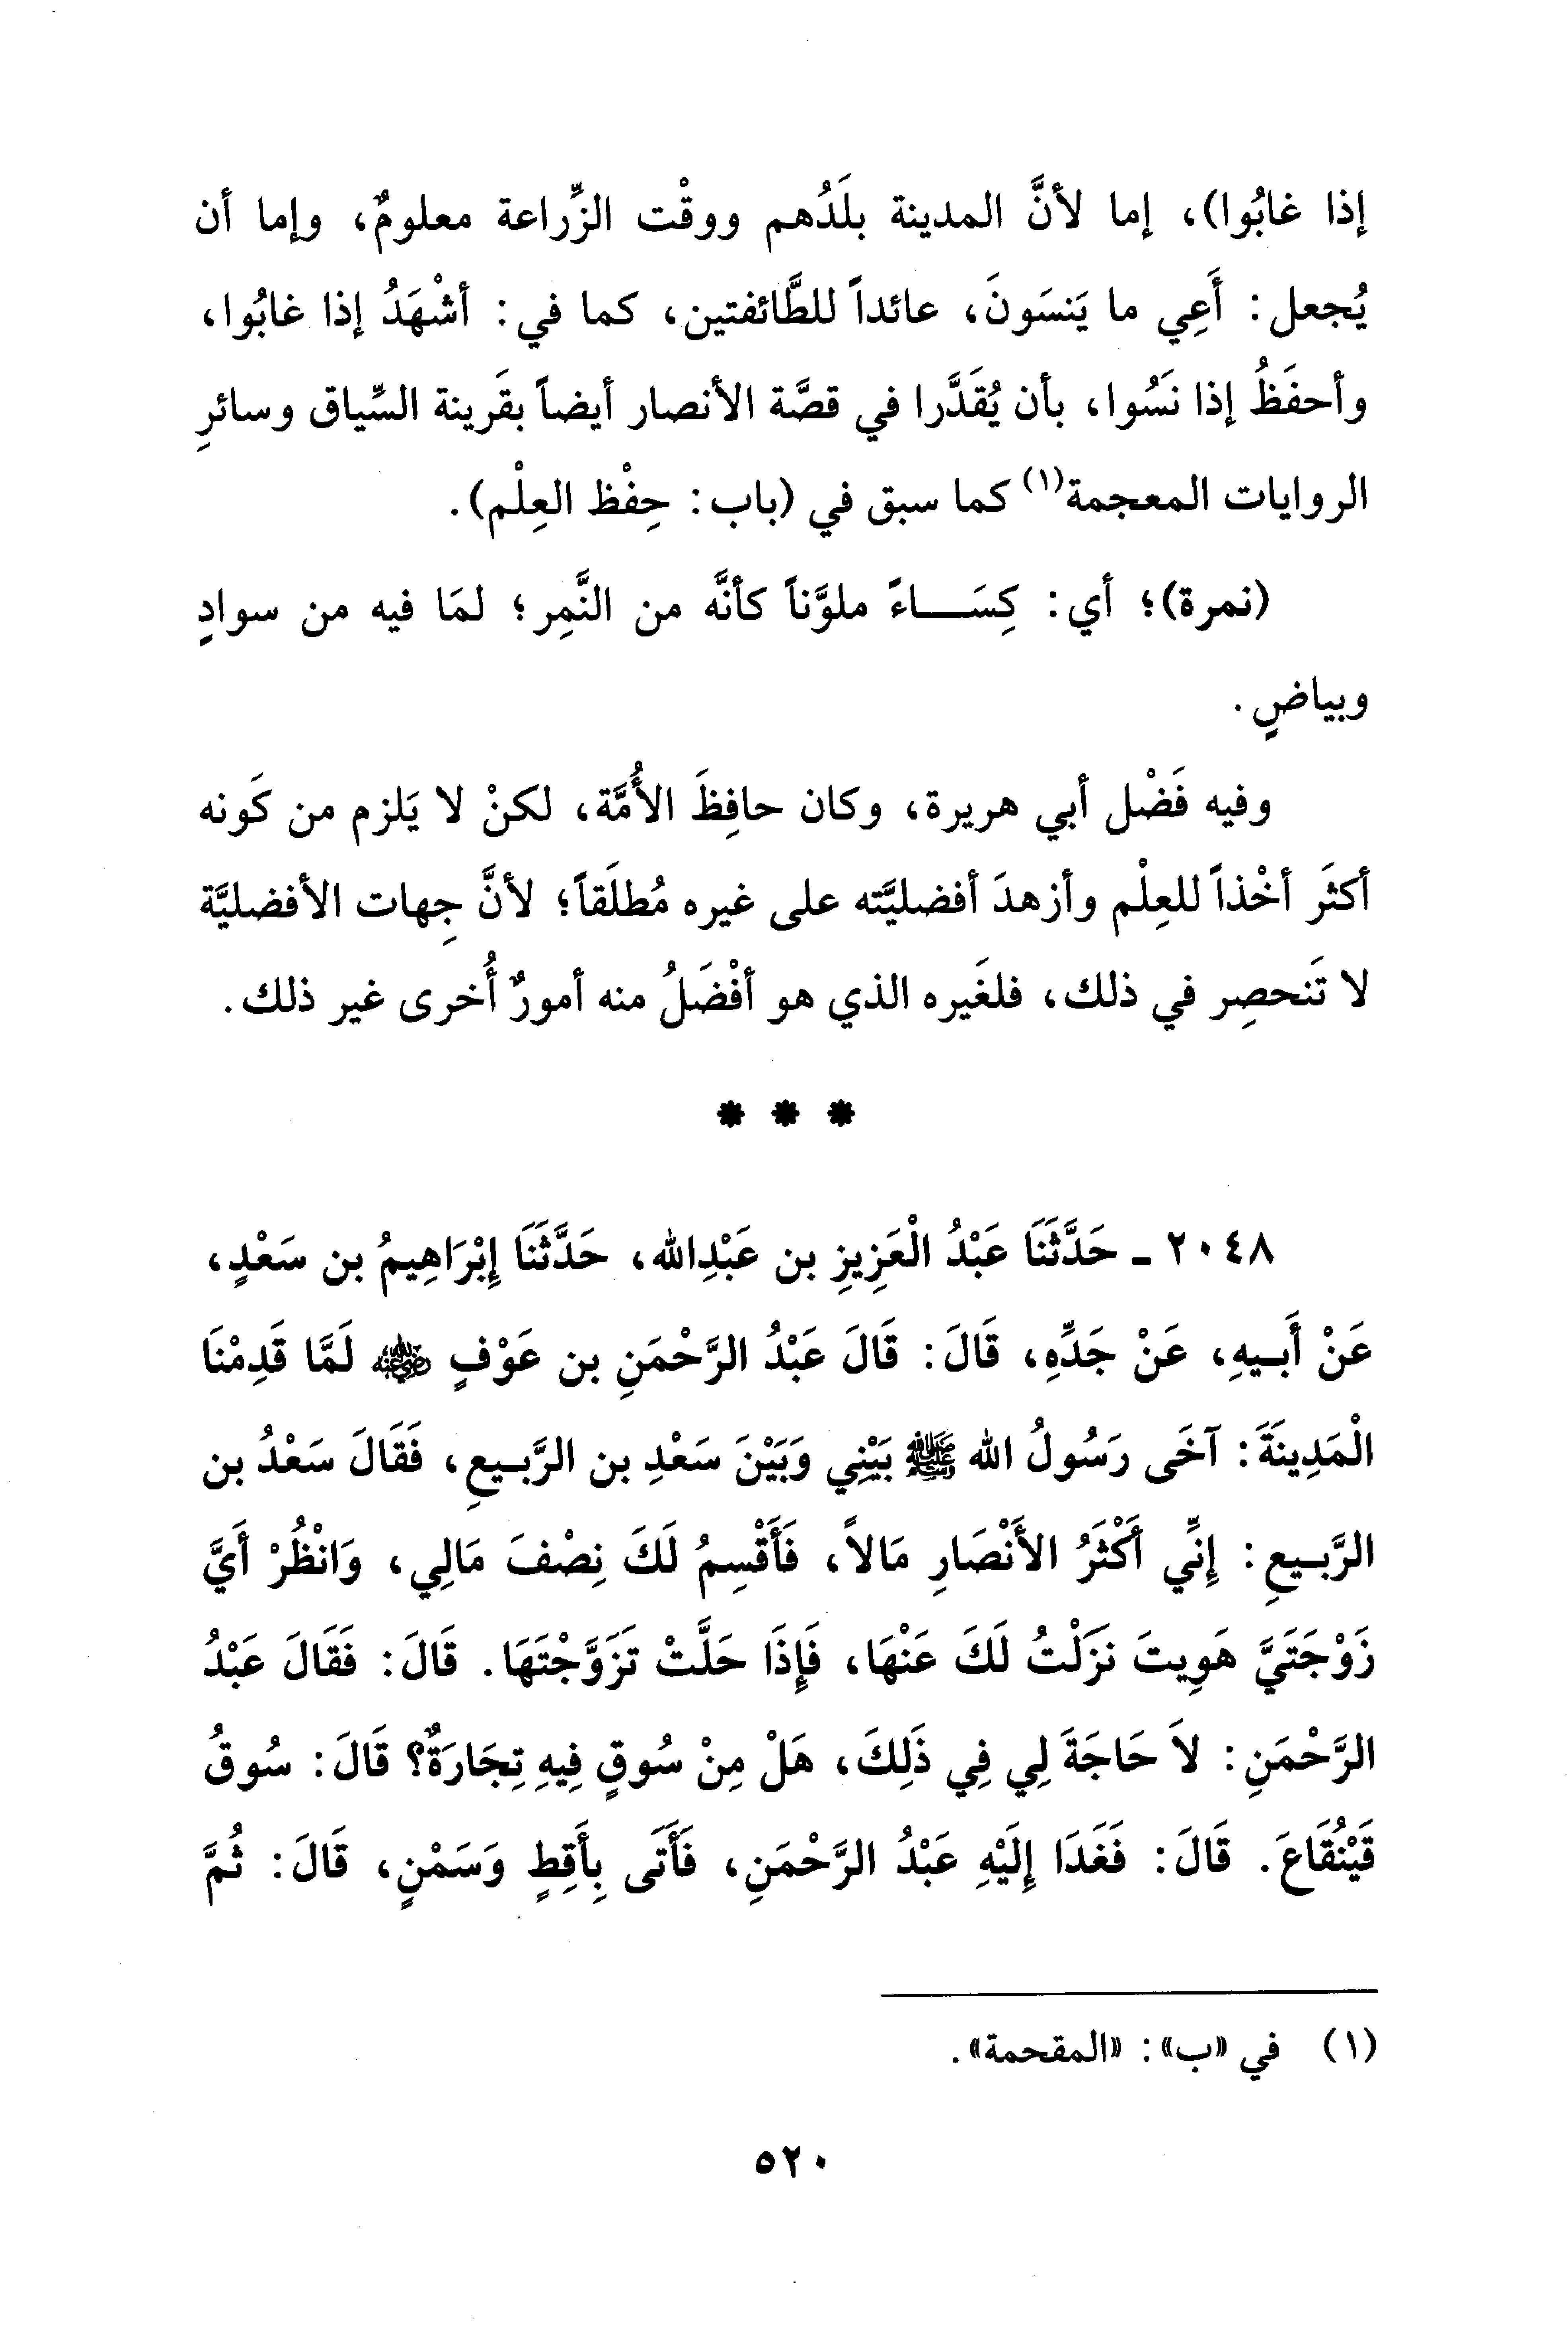 إذا غابُوا)، إما لأنَّ المدينة بلَدُهم ووقْت الزِّراعة معلومٌ، وإما أن
يُجعل: أَعِي ما يَنسَونَ، عائداً للطَّائفتين، كما في: أشْهَدُ إذا غابُوا،
وأحفَظُ إذا نسَُوا، بأن يُقَدَّرا في قصَّة الأنصار أيضاً بقَرينة السِّياق وسائرِ
الروايات المعجمة(١) كما سبق في (باب: حِفْظ العِلْم).
(نمرة)؛ أي: كِسَـــاءً ملوَّناً كأنَّه من النَّمِر؛ لمَا فيه من سوادٍ
وبياضٍ.
وفيه فَضْل أبي هريرة، وكان حافِظَ الأُمَّة، لكنْ لا يَلزم من كَونه
أكثَر أخْذاً للعِلْم وأزهدَ أفضليَّته على غيره مُطلَقاً؛ لأنَّ جِهات الأفضليَّة
لا تَنحصِر في ذلك، فلغَيره الذي هو أفْضَلُ منه أمورٌ أُخرى غير ذلك.
* * *
٢٠٤٨ ـ حَدَّثَنَا عَبْدُ الْعَزِيزِ بن عَبْدِالله، حَدَّثَنَا إِبْرَاهِيمُ بن سَعْدٍ،
عَنْ أَبـيهِ، عَنْ جَدِّهِ، قَالَ: قَالَ عَبْدُ الرَّحْمَنِ بن عَوْفٍ رضي الله عنه لَمَّا قَدِمْنَا
الْمَدِينَةَ: آخَى رَسُولُ الله ﷺ بَيْنِي وَبَيْنَ سَعْدِ بن الرَّبـيعِ، فَقَالَ سَعْدُ بن
الرَّبـيعِ: إِنِّي أَكْثَرُ الأَنْصَارِ مَالاً، فَأَقْسِمُ لَكَ نِصْفَ مَالِي، وَانْظُرْ أَيَّ
زَوْجَتَيَّ هَوِيتَ نَزَلْتُ لَكَ عَنْهَا، فَإِذَا حَلَّتْ تَزَوَّجْتَهَا. قَالَ: فَقَالَ عَبْدُ
الرَّحْمَنِ: لاَ حَاجَةَ لِي فِي ذَلِكَ، هَلْ مِنْ سُوقٍ فِيهِ تِجَارَةٌ؟ قَالَ: سُوقُ
قَيْنُقَاعَ. قَالَ: فَغَدَا إِلَيْهِ عَبْدُ الرَّحْمَنِ، فَأَتَى بِأَقِطٍ وَسَمْنٍ، قَالَ: ثُمَّ
(١) في «ب»: «المقحمة».
٥٢٠